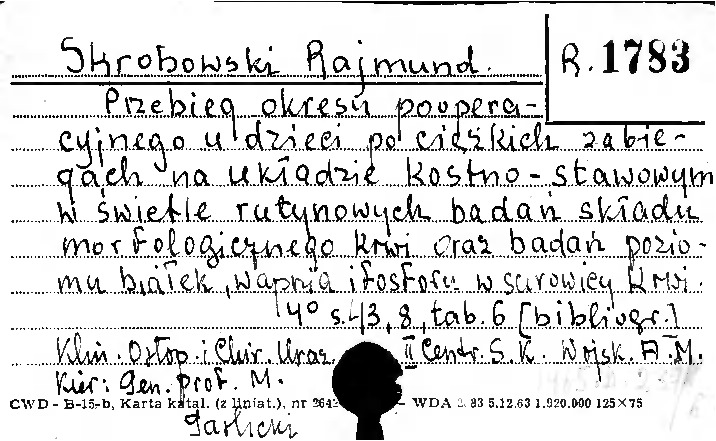 Skrobowski Rajmund.
R. 1783
Przebieg okresu poopera-
cyjnego u dzieci po ciężkich zabie-
gach na układzie kostno-stawowym
w świetle rutynowych badań składu
morfologicznego krwi oraz badań pozio-
mu białek, wapnia i fosforu w surowicy krwi.
4° s. 43, 8, tab. 6 [bibliogr.]
Klin. Ortop. i Chir. Uraz. II Centr. S. K. Wojsk. A. M.
Kier: Gen. prof. M.
CWD - B-15-b, Karta katal. (z liniat.), nr 264 WDA 83 5.12.63 1.920.000 125×75
Garlicki